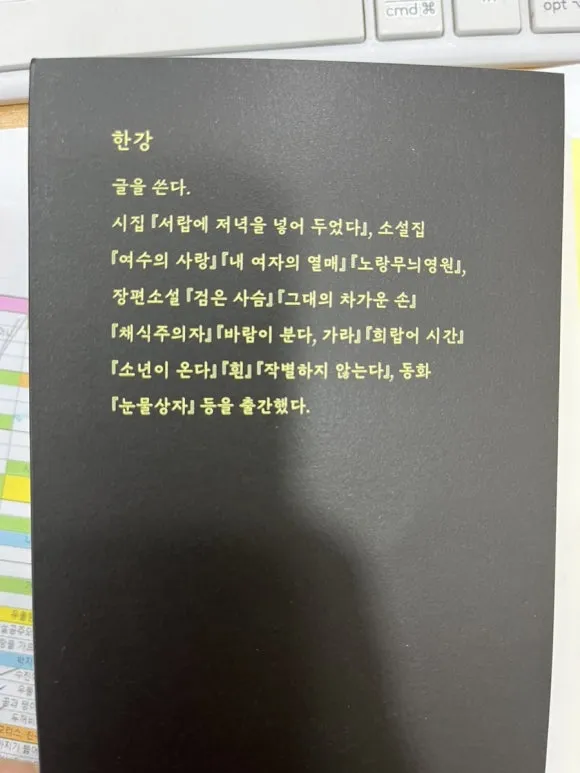 cmd ⌘
opt
한강
글을 쓴다.
시집 『서랍에 저녁을 넣어 두었다』, 소설집
『여수의 사랑』 『내 여자의 열매』 『노랑무늬영원』,
장편소설 『검은 사슴』 『그대의 차가운 손』
『채식주의자』 『바람이 분다, 가라』 『희랍어 시간』
『소년이 온다』 『흰』 『작별하지 않는다』, 동화
『눈물상자』 등을 출간했다.